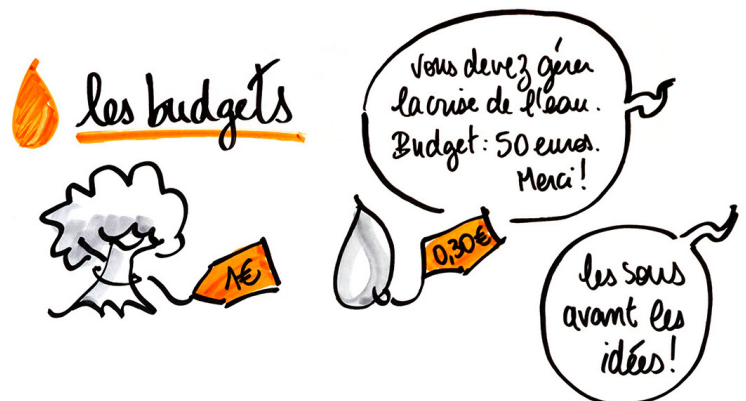 les budgets
vous devez gérer
la crise de l'eau.
Budget : 50 euros.
Merci !
1€
0,30€
les sous
avant les
idées !